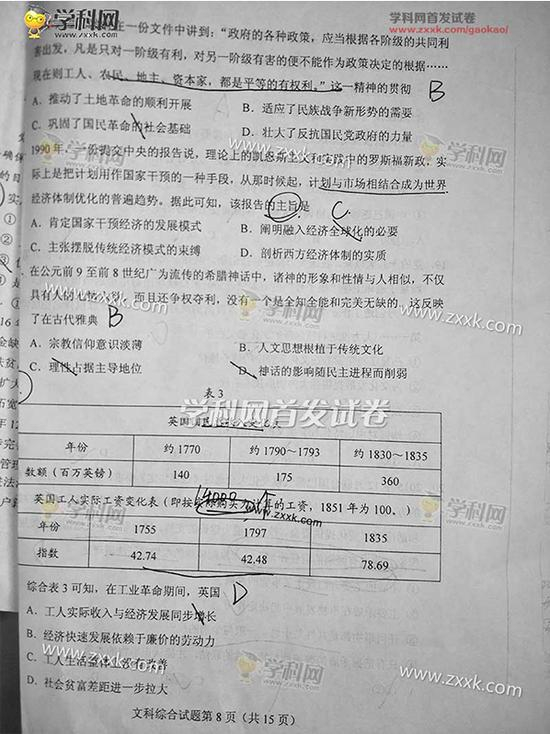 学科网首发试卷
www.zxxk.com/gaokao/
在一份文件中讲到：“政府的各种政策，应当根据各阶级的共同利
害出发，凡是只对一阶级有利，对另一阶级有害的便不能作为政策决定的根据……
现在则工人、农民、地主、资本家，都是平等的有权利。”这一精神的贯彻 B
A．推动了土地革命的顺利开展 B．适应了民族战争新形势的需要
C．巩固了国民革命的社会基础 D．壮大了反抗国民党政府的力量
1990年，一份提交中央的报告说，理论上的凯恩斯主义和实践中的罗斯福新政，实
际上是把计划用作国家干预的一种手段，从那时候起，计划与市场相结合成为世界
经济体制优化的普遍趋势。据此可知，该报告的主旨是 C
A．肯定国家干预经济的发展模式 B．阐明融入经济全球化的必要
C．主张摆脱传统经济模式的束缚 D．剖析西方经济体制的实质
在公元前9至前8世纪广为流传的希腊神话中，诸神的形象和性情与人相似，不仅
具有人的 而且还争权夺利，没有一个是全知全能和完美无缺的。这反映
了在古代雅典 B
A．宗教信仰意识淡薄 B．人文思想根植于传统文化
C．理性占据主导地位 D．神话的影响随民主进程而削弱
表3
学科网首发试卷
英国国民
年份 约1770 约1790～1793 约1830～1835
数额（百万英镑） 140 175 360
英国工人实际工资变化表（即按实际购买力计算的工资，1851年为100。）
年份 1755 1797 1835
指数 42.74 42.48 78.69
综合表3可知，在工业革命期间，英国 D
A．工人实际收入与经济发展同步增长
B．经济快速发展依赖于廉价的劳动力
C．工人生活整体上 改善
D．社会贫富差距进一步拉大
文科综合试题第8页（共15页）
学科网
www.zxxk.com